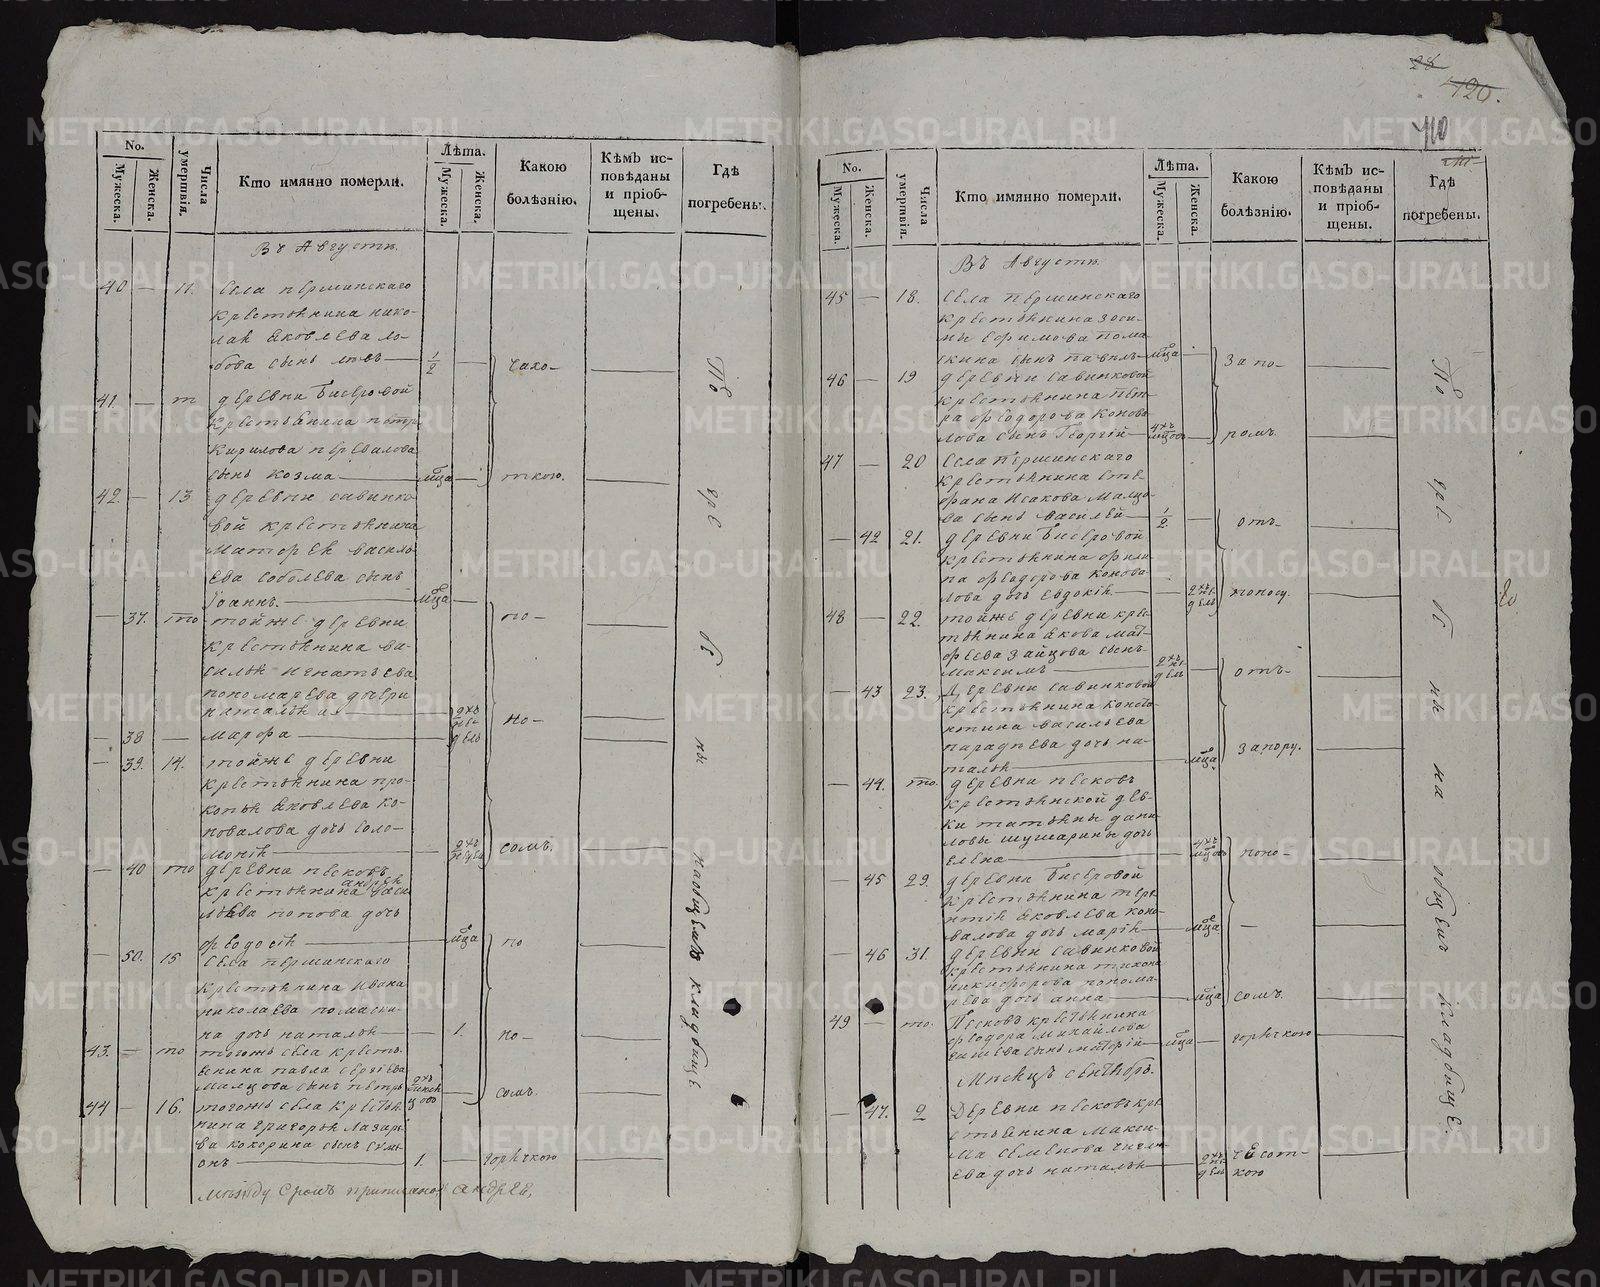 28
120.
410
No.
Мужеска.
Женска.
Числа умертвія.
Кто имянно померли.
Лѣта.
Мужеска.
Женска.
Какою болѣзнію.
Кѣмъ исповѣданы и пріобщены.
Гдѣ погребены.
Въ Августѣ.
40 — 11. Села Першинскаго
крестьянина Нико-
лая Яковлева Ло-
бова сынъ Левъ — 1/2 — чахо-
41. — то деревни Бисеровой
крестьянина Петра
Кирилова Перевалова
сынъ Козма — мѣсяца — ткою.
42. — 13 деревни Савинко-
вой крестьянина
Матфея Василь-
ева Соболева сынъ
Іоаннъ. — мѣсяца —
— 37. то тойже деревни
крестьянина Ва-
силья Игнатьева
Пономарева дочери
Наталья и — 2хъ не-
— 38 — Марфа — дель
— 39. 14. тойже деревни
крестьянина Про-
копья Яковлева Ко-
новалова дочь Соло-
монія — 2хъ недель
— 40 то деревни Песковъ
крестьянина Андрея Васи-
льева Попова дочь
Феодосія — мѣсяца
— 50. 15 Села Першинскаго
крестьянина Ивана
Николаева Помаски-
на дочь Наталья — 1.
43. — то тогожъ села кресть-
янина Павла Сергіева
Малцова сынъ Петръ
44 — 16. тогожъ села крестья-
нина Григорья Лазаре-
ва Кокорина сынъ Симе-
онъ — 1. — горячкою
поносомъ.
по
но-
сомъ.
По гдѣ бѣ ны на общемъ кладбищѣ
между строкъ приписано Андрея.
No.
Мужеска.
Женска.
Числа умертвія.
Кто имянно померли.
Лѣта.
Мужеска.
Женска.
Какою болѣзнію.
Кѣмъ исповѣданы и пріобщены.
Гдѣ погребены.
Въ Августѣ.
45 — 18. Села Першинскаго
крестьянина Зоси-
мы Ефимова Пома-
скина сынъ Павелъ — мѣсяца — запо-
46 — 19 деревни Савинковой
крестьянина Пет-
ра Феодорова Коново-
лова сынъ Георгій — 4хъ мѣсяцовъ — ромъ.
47 — 20 Села Першинскаго
крестьянина Сте-
фана Исакова Малцо-
ва сынъ Василей — 1/2 — отъ
— 42 21. деревни Бисеровой
крестьянина Фили-
па Феодорова Конова-
лова дочь Евдокія — 2хъ недель
48 — 22. тойже деревни кре-
стьянина Якова Мат-
феева Зайцова сынъ
Максимъ — 2хъ недель — отъ-
— 43 23. Деревни Савинковой
крестьянина Конста-
нтина Васильева
дочь На-
талья — мѣсяца — запору.
— 44. то. деревни Песковъ
крестьянской дев-
ки Татьяны Дани-
ловы Шушарины дочь
Елена — 4хъ мѣсяцовъ — поно-
— 45 29. деревни Бисеровой
крестьянина Тере-
нтія Яковлева Коно-
валова дочь Марія — мѣсяца —
— 46 31. деревни Савинковой
крестьянина Тихона
Никифорова Понома-
рева дочь Анна — мѣсяца сомъ.
49 — то. Песковъ крестьянина
Феодора Михайлова
сынъ — мѣсяца — горячкою
Мѣсяцъ Сентябрь.
— 47. 2 Деревни Песковъ кре-
стьянина Макси-
ма Семенова
дочь Наталья — 2хъ недель чесот-
кою
По гре бе ны на общемъ кладбище.